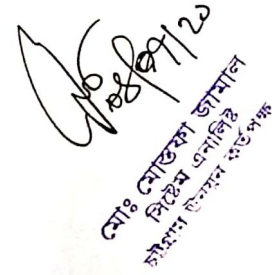 ০৪/০৭/২০
মোঃ মোস্তফা জামাল
সিস্টেম এনালিষ্ট
চট্টগ্রাম উন্নয়ন কর্তৃপক্ষ